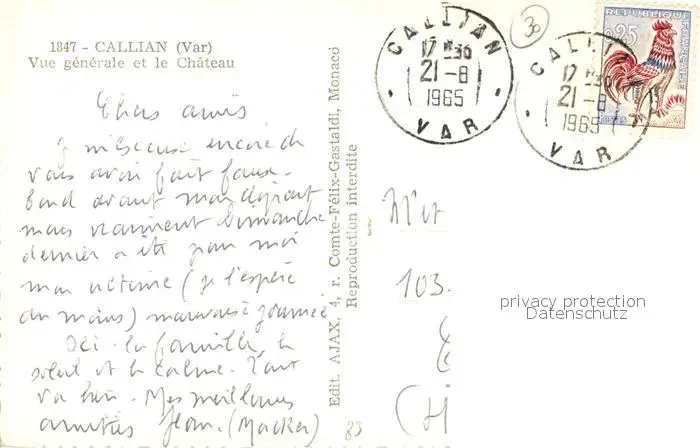 1847 - CALLIAN (Var)
Vue générale et le Château
Chers amis
Je m'excuse encore de
vous avoir fait faux-
bond avant mon départ
mais vraiment Dimanche
dernier a été pour moi
mon ultime (je l'espère
du moins) mauvaise journée
Ici la famille, le
soleil et le calme. Tout
va bien. Mes meilleures
amitiés Jean. (Macker)
23
Edit. AJAX, 4, r. Comte-Félix-Gastaldi, Monaco
Reproduction interdite
CALLIAN
17 H 30
21-8
1965
VAR
30
CALLI
17 H 30
21-8
1965
VAR
REPUBLIQUE FRANÇAISE
0,25
POSTES
M et
103.
privacy protection
Datenschutz